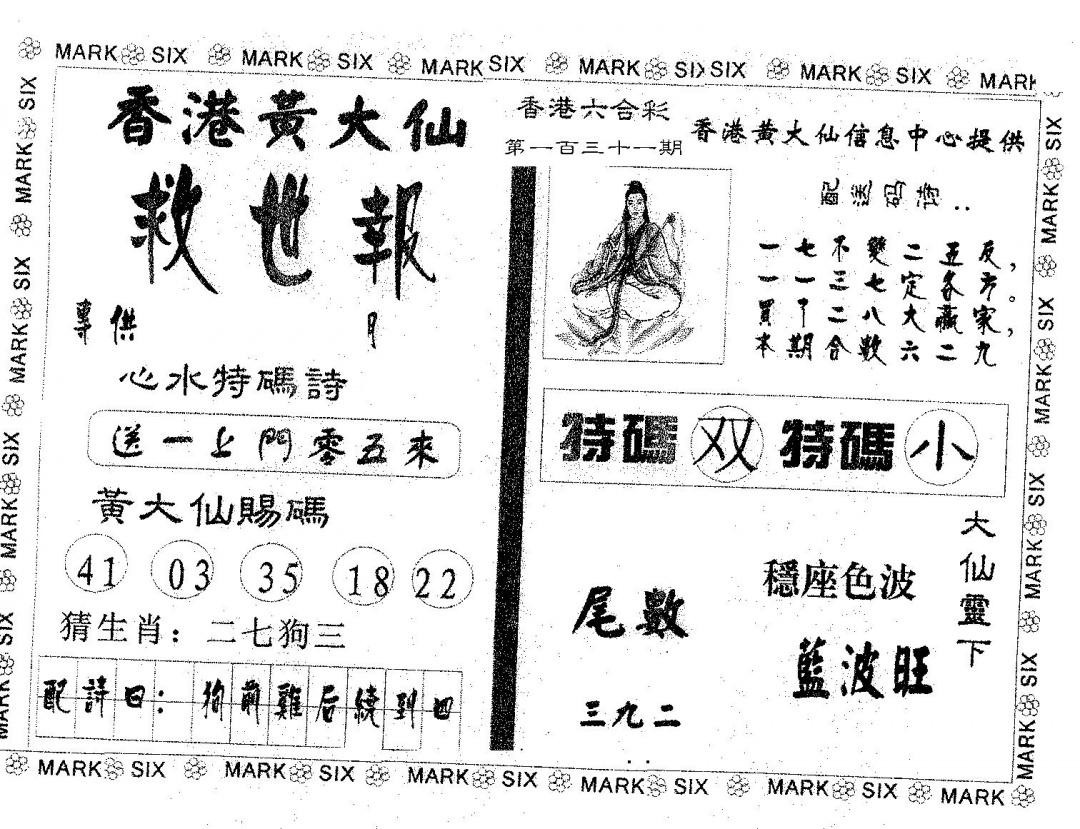 MARK SIX MARK SIX MARK SIX MARK SIX SIX MARK SIX MARK
香港黃大仙
救世報
專供 月
心水特碼詩
送一上門零五來
黃大仙賜碼
41 03 35 18 22
猜生肖：二七狗三
配詩曰：狗前雞后繞到四
香港六合彩
第一百三十一期
香港黄大仙信息中心提供
配送码诗：
一七不變二五反，
一一三七定各方。
買了二八大贏家，
本期合數六二九
特碼 双 特碼 小
大仙靈下
穩座色波
藍波旺
尾數
三九二
MARK SIX MARK SIX MARK SIX MARK SIX MARK SIX MARK
MARK SIX MARK SIX MARK SIX MARK SIX
MARK SIX MARK SIX MARK SIX MARK SIX